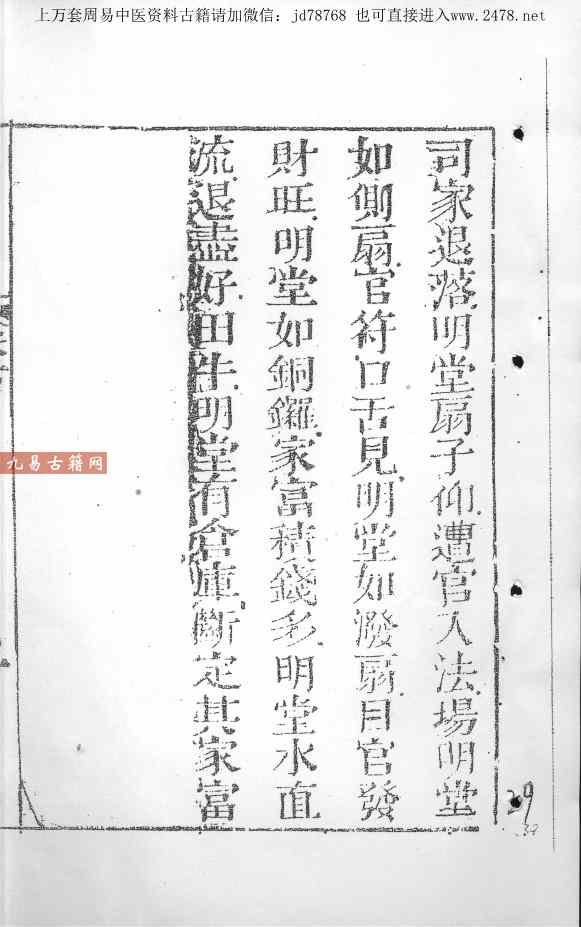 上万套周易中医资料古籍请加微信：jd78768 也可直接进入www.2478.net
司家退落明堂扇子仰遭官入法場明堂
如側扇官符口舌見明堂如潑扇目官發
財旺明堂如銅鑼家富積錢多明堂水直
流退盡好田牛明堂有倉庫斷定其家富
九易古籍网
29